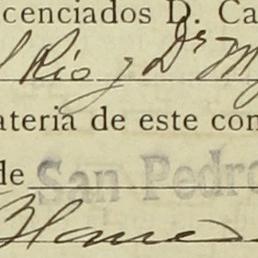 cenciados D. Ca
l Río y Dr M
ateria de este con
de San Pedro
Blanc